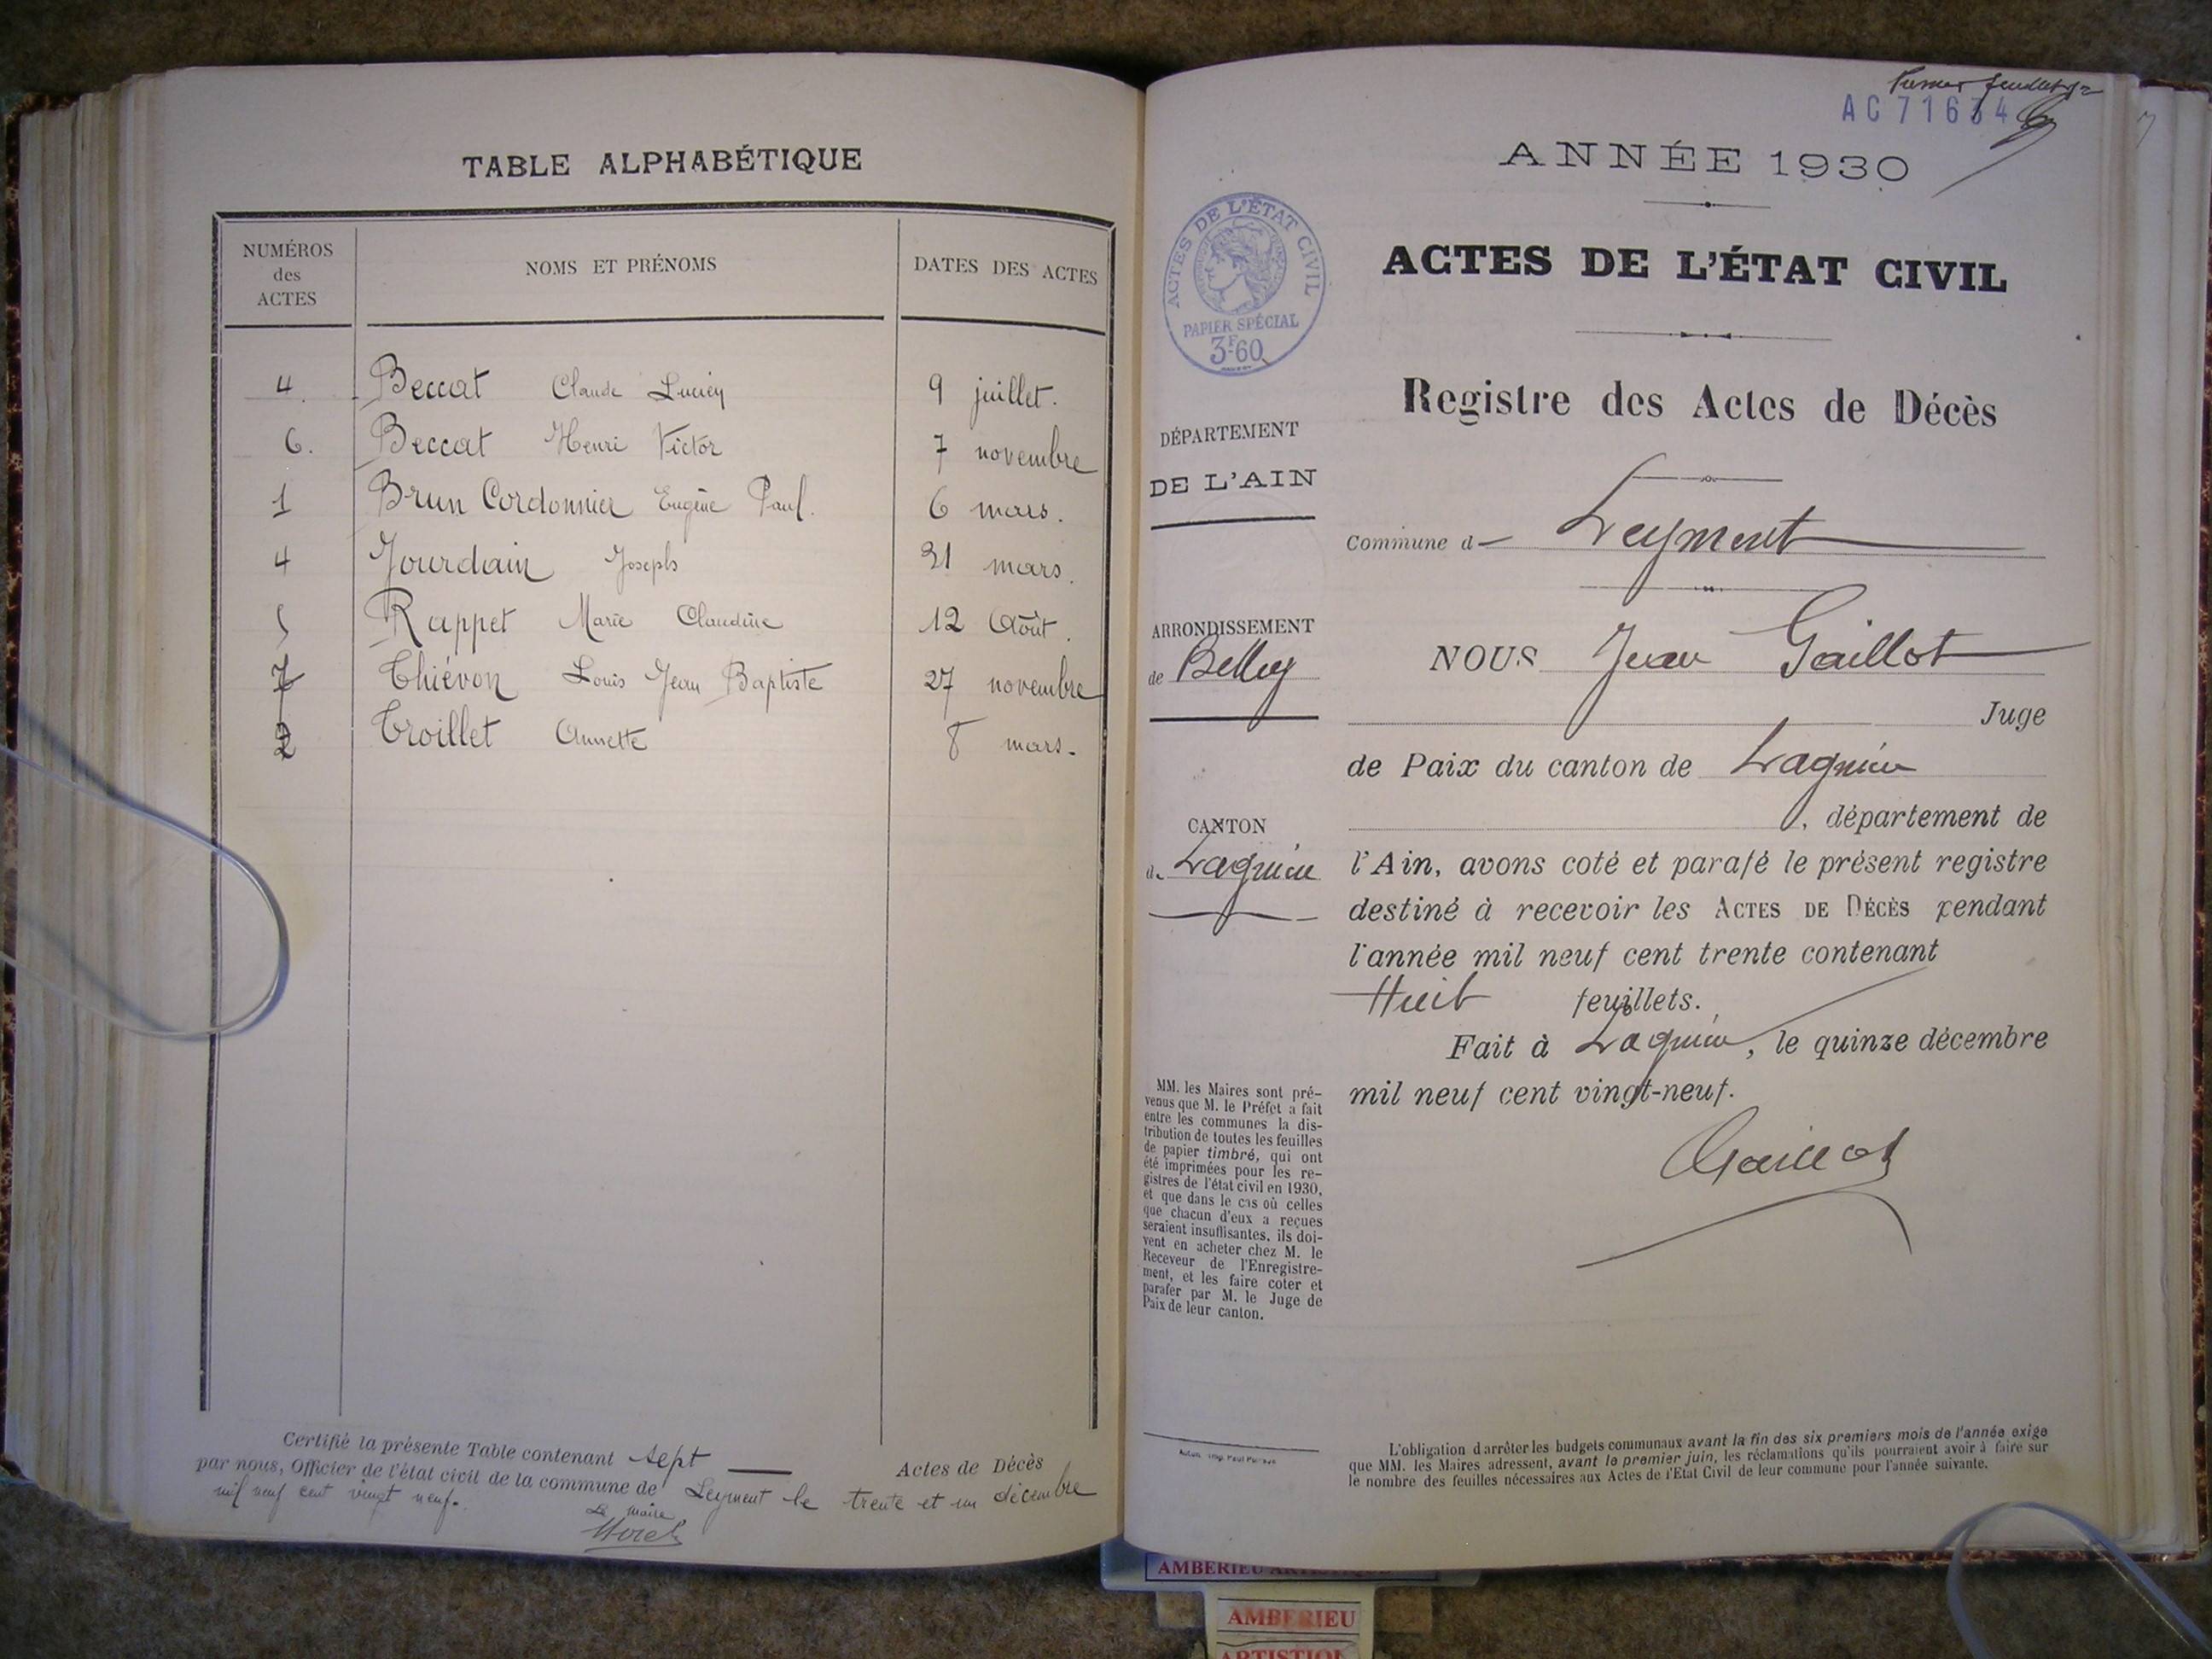 TABLE ALPHABÉTIQUE
NUMÉROS des ACTES NOMS ET PRÉNOMS DATES DES ACTES
4. Beccat Claude Lucien 9 juillet.
6. Beccat Henri Victor 7 novembre
1 Brun Cordonnier Eugène Paul. 6 mars.
4 Jourdain Joseph 31 mars.
5 Rappet Marie Claudine 12 Août.
7 Thiévon Louis Jean Baptiste 27 novembre
2 Troillet Annette 8 mars.
Certifié la présente Table contenant sept Actes de Décès
par nous, Officier de l'état civil de la commune de Leyment le trente et un décembre
mil neuf cent vingt neuf.
Le maire
Premier feuillet
AC 71634
ANNÉE 1930
ACTES DE L'ÉTAT CIVIL
ACTES DE L'ÉTAT CIVIL
PAPIER SPÉCIAL
3F60
Registre des Actes de Décès
DÉPARTEMENT
DE L'AIN
Commune d Leyment
ARRONDISSEMENT
de Belley
NOUS Jean Gaillot
Juge
de Paix du canton de Lagnieu
CANTON
de Lagnieu
, département de
l'Ain, avons coté et parafé le présent registre
destiné à recevoir les ACTES DE DÉCÈS pendant
l'année mil neuf cent trente contenant
Huit feuillets.
Fait à Lagnieu, le quinze décembre
mil neuf cent vingt-neuf.
Gaillot
MM. les Maires sont pré-
venus que M. le Préfet a fait
entre les communes la dis-
tribution de toutes les feuilles
de papier timbré, qui ont
été imprimées pour les re-
gistres de l'état civil en 1930,
et que dans le cas où celles
que chacun d'eux a reçues
seraient insuffisantes, ils doi-
vent en acheter chez M. le
Receveur de l'Enregistre-
ment, et les faire coter et
parafer par M. le Juge de
Paix de leur canton.
L'obligation d'arrêter les budgets communaux avant la fin des six premiers mois de l'année exige
que MM. les Maires adressent, avant le premier juin, les réclamations qu'ils pourraient avoir à faire sur
le nombre des feuilles nécessaires aux Actes de l'Etat Civil de leur commune pour l'année suivante.
AMBERIEU ARTISTIQUE
AMBERIEU